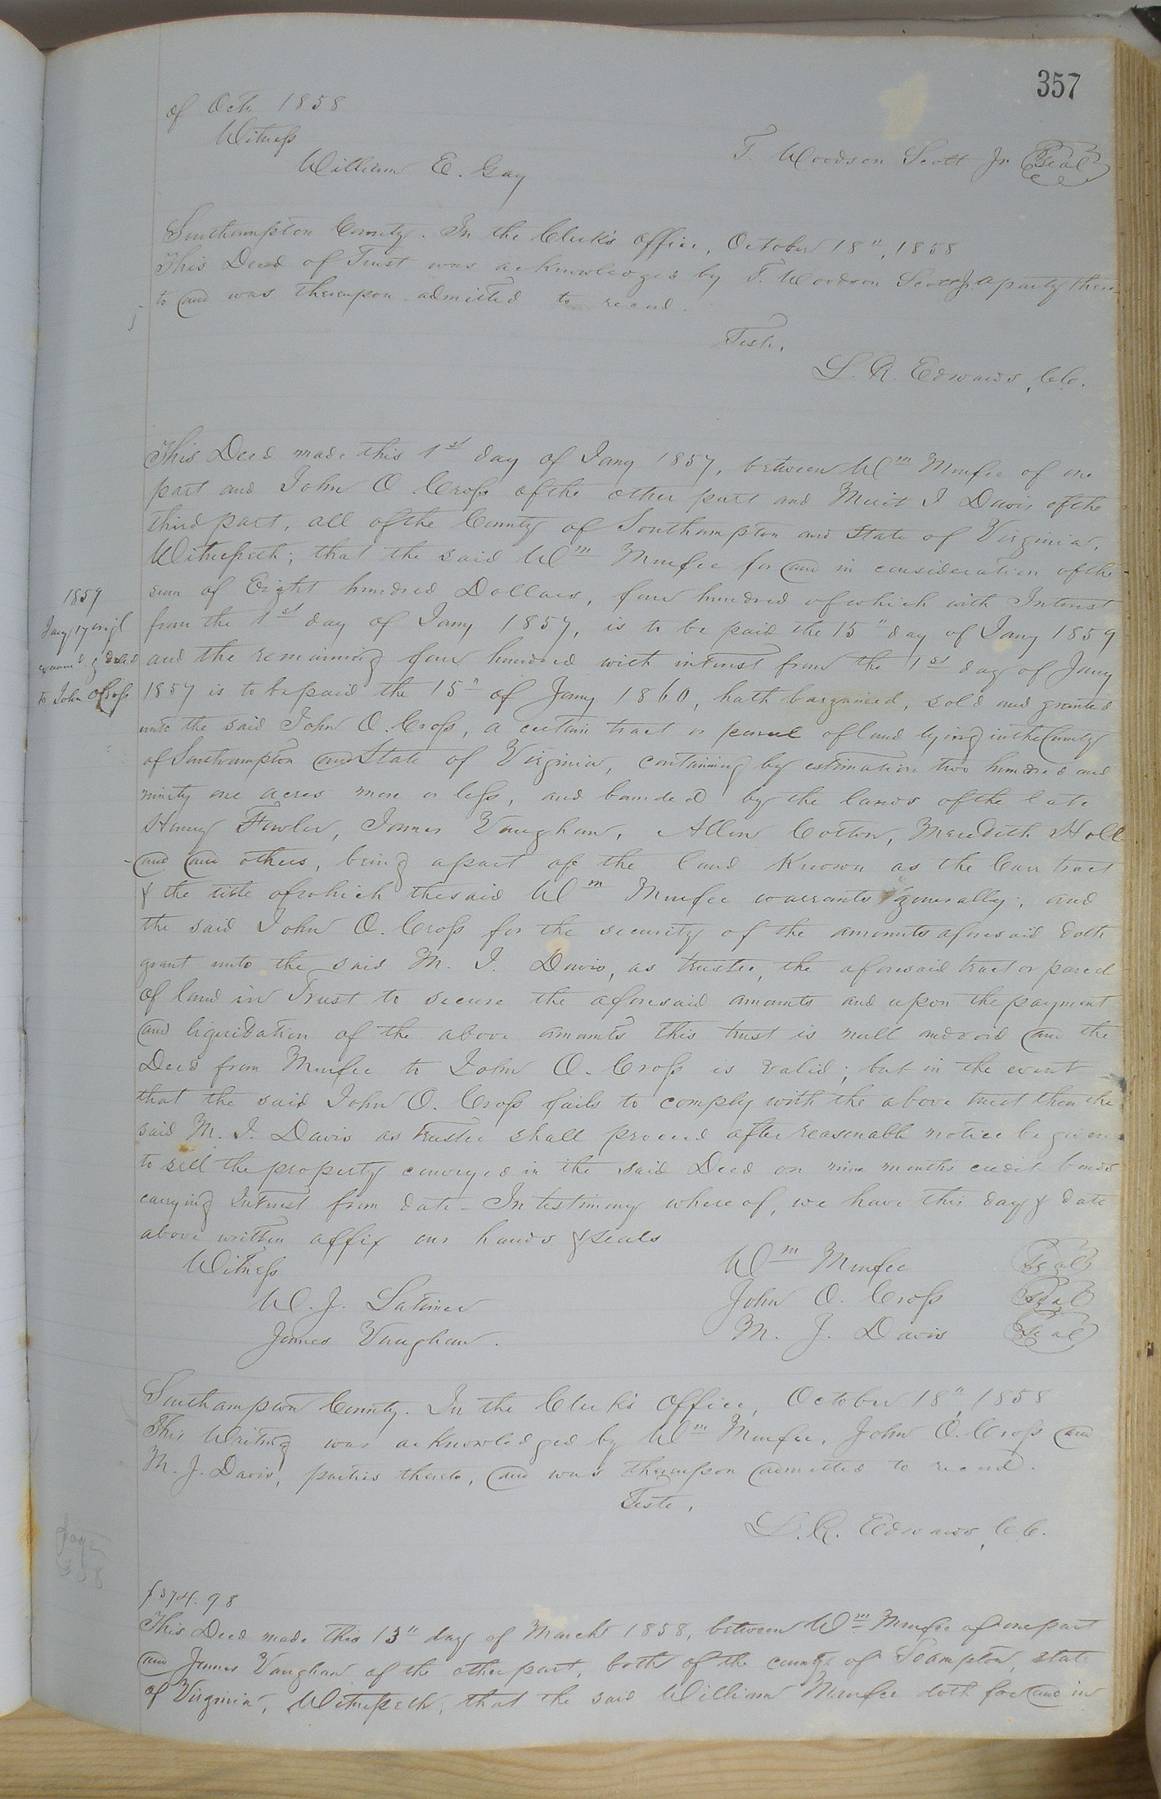 357
of Oct. 1858
Witness
T. Woodson Scott Jr Seal
William E. Gay
Southampton County. In the Clerk's office, October 18", 1858
This Deed of Trust was acknowledged by T. Woodson Scott Jr a party there
to and was thereupon admitted to record.
Teste,
L. R. Edwards, CC.
This Deed made this 1st day of Jany 1857, between Wm Murfee of one
part and John O Cross of the other part and Merit J Davis of the
third part, all of the County of Southampton and State of Virginia,
Witnesseth; that the said Wm Murfee for and in consideration of the
sum of Eight hundred Dollars, four hundred of which with Interest
from the 1st day of Jany 1857, is to be paid the 15" day of Jany 1859
and the remaining four hundred with interest from the 1st day of Jany
1857 is to be paid the 15" of Jany 1860, hath bargained, sold and granted
unto the said John O. Cross, a certain tract or parcel of land lying in the County
of Southampton and State of Virginia, containing by estimation two hundred and
ninety one acres more or less, and bounded by the lands of the late
Henry Fowler, James Vaughan, Allen Cotton, Meredith Holl
and and others, being a part of the land known as the Carr tract
& the title of which the said Wm Murfee warrants generally; and
the said John O. Cross for the security of the amounts aforesaid doth
grant unto the said M. J. Davis, as trustee, the aforesaid tract or parcel
of land in Trust to secure the aforesaid amounts and upon the payment
and liquidation of the above amounts this trust is null and void and the
Deed from Murfee to John O. Cross is valid; but in the event
that the said John O. Cross fails to comply with the above trust then the
said M. J. Davis as trustee shall proceed after reasonable notice be given
to sell the property conveyed in the said Deed on nine months credit bonds
carrying Interest from date - In testimony whereof, we have this day & date
above written affix our hands & seals
Witness
Wm Murfee Seal
W. J. Latimer
John O. Cross Seal
James Vaughan.
M. J. Davis Seal
1859
Jany 17 origl
examd & deld
to John O Cross
Southampton County. In the Clerk's Office, October 18", 1858
This Writing was acknowledged by Wm Murfee, John O. Cross and
M. J. Davis, parties thereto, and was thereupon admitted to record.
Teste,
L. R. Edwards, CC.
page
358
$574.98
This Deed made this 13" day of March 1858, between Wm Murfee of one part
and James Vaughan of the other part, both of the county of Southampton, state
of Virginia, Witnesseth, that the said William Murfee doth for and in